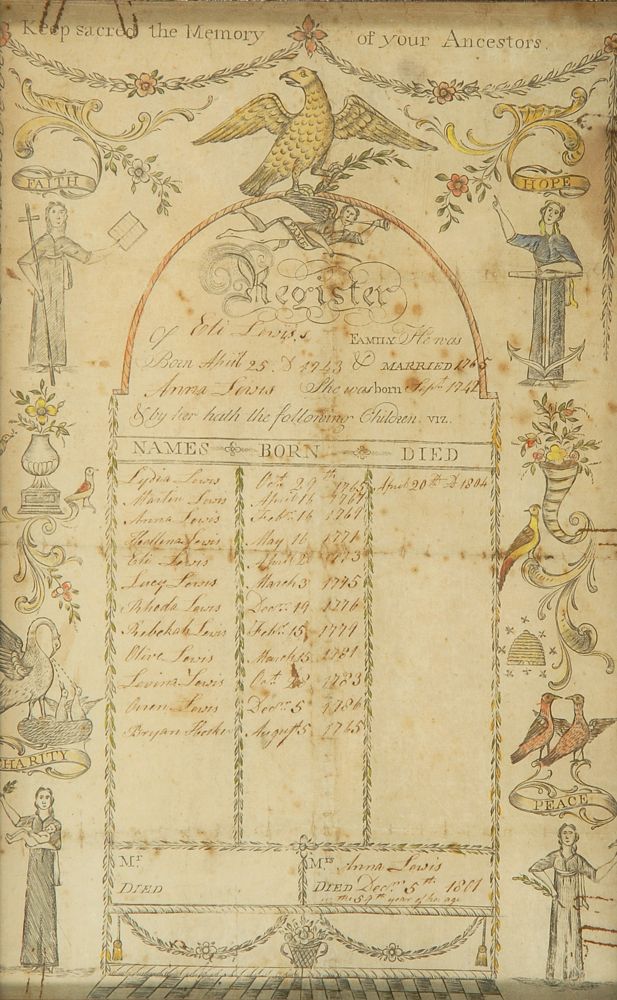 Keep sacred the Memory of your Ancestors.
FAITH
HOPE
FAME
Register
Of Eli Lewis's FAMILY. He was
Born April 25. D 1743 & MARRIED 1765
Anna Lewis She was born Sept. 1742
& by her hath the following Children. VIZ.
NAMES BORN DIED
Lydia Lewis Oct. 29th 1765 April 20th D 1804
Martin Lewis April 16 1767
Anna Lewis Feb. 16 1769
Lewis May 16 1771
Eli Lewis 1773
Lucy Lewis March 3 1775
Rhoda Lewis Decr. 19 1776
Rebekah Lewis Feb. 15 1779
Olive Lewis March 15 1781
Lovina Lewis Oct. 28 1783
Oren Lewis Decr. 5 1786
Bryan August 5 1765
CHARITY
PEACE
Mr
DIED
Mrs Anna Lewis
DIED Decr. 5th 1801
in the 59th year of her age